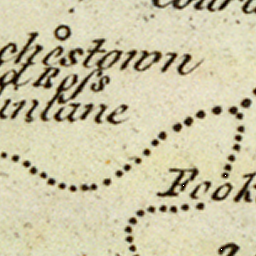 chestown
d Roſs
unlane
Fook